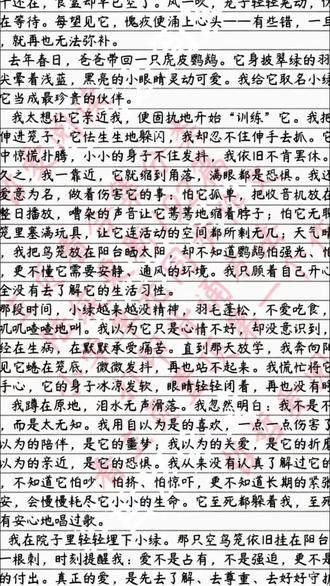 子还在，食盒却早已空了。风一吹，笼子轻轻晃动，仿
在等待。每望见它，愧疚便涌上心头——有些错，一旦
，就再也无法弥补。
去年春日，爸爸带回一只虎皮鹦鹉。它身披翠绿的羽
尖晕着浅蓝，黑亮的小眼睛灵动可爱。我给它取名小绿
它当成最珍贵的伙伴。
我太想让它亲近我，便固执地开始“训练”它。我把
伸进笼子，它怯生生地躲闪，我却忍不住伸手去抓。它
中惊慌扑腾，小小的身子不住发抖，我依旧不肯罢休。
久之，我一靠近，它就缩到角落，满眼都是恐惧。我还
爱意为名，做着伤害它的事：怕它孤单，把收音机放在
整日播放，嘈杂的声音让它蔫蔫地缩着脖子；怕它无聊
笼里塞满玩具，让它连活动的空间都所剩无几；天气晴
，我把鸟笼放在阳台晒太阳，却不知道鹦鹉怕强光、怕
，更不懂它需要安静、通风的环境。我只顾着自己开心
全没有去了解它的生活习性。
那段时间，小绿越来越没精神，羽毛蓬松，不爱吃食，
叽叽喳喳地叫。我以为它只是心情不好，却没意识到，
经在生病，在默默承受痛苦。直到那天放学，我奔向阳
见它蜷在笼底，微微发抖，再也站不起来。我慌忙将它
手心，它的身子冰凉发软，眼睛轻轻闭着，再也没有呼
我蹲在原地，泪水无声滑落。我忽然明白：我不是不
，而是太无知。我用自以为是的喜欢，一点一点伤害了
以为的陪伴，是它的噩梦；我以为的关爱，是它的折磨
以为的亲近，是它的恐惧。我从来没有认真了解过它的
，不知道它怕吵、怕挤、怕惊吓，更不知道长期的紧张
安，会慢慢耗尽它小小的生命。它至死都躲着我，至死
有安心地唱过歌。
我在院子里轻轻埋下小绿。那只空鸟笼依旧挂在阳台
一根刺，时刻提醒我：爱不是占有，不是强迫，更不是
的付出。真正的爱，是先去了解、去尊重、去好好守护